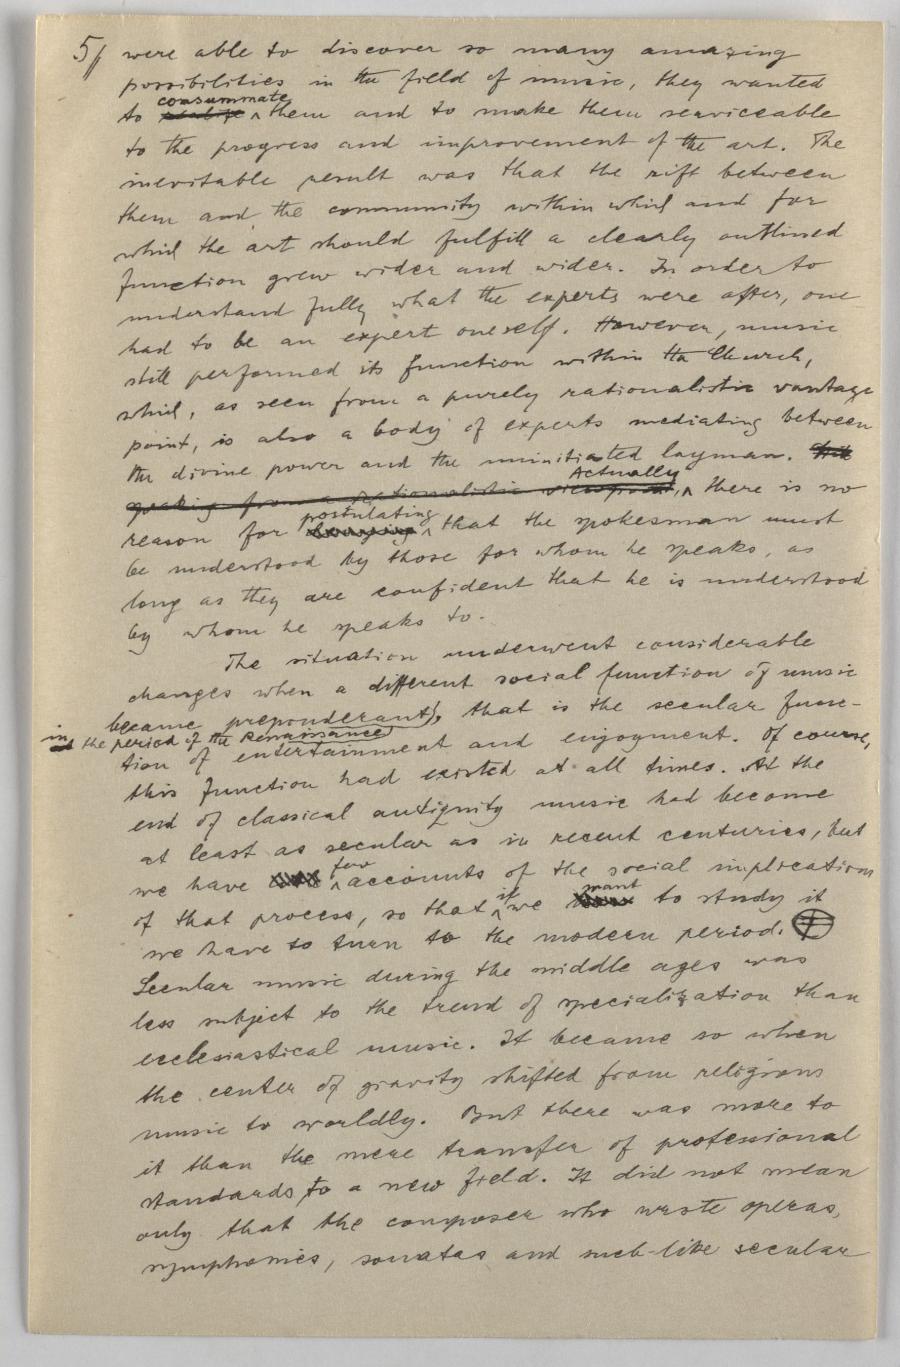 5/ were able to discover so many amazing
possibilities in the field of music, they wanted
consummate
to them and to make them serviceable
to the progress and improvement of the art. The
inevitable result was that the rift between
them and the community within which and for
which the art should fulfill a clearly outlined
function grew wider and wider. In order to
understand fully what the experts were after, one
had to be an expert oneself. However, music
still performed its function within the Church,
which, as seen from a purely rationalistic vantage
point, is also a body of experts mediating between
the divine power and the uninitiated layman.
Actually
speaking from a rationalistic viewpoint, there is no
postulating
reason for that the spokesman must
be understood by those for whom he speaks, as
long as they are confident that he is understood
by whom he speaks to.
The situation underwent considerable
changes when a different social function of music
became preponderant, that is the secular func-
in the period of the Renaissance
tion of entertainment and enjoyment. Of course,
this function had existed at all times. At the
end of classical antiquity music had become
at least as secular as in recent centuries, but
few
we have accounts of the social implications
if want
of that process, so that we to study it
we have to turn to the modern period.
Secular music during the middle ages was
less subject to the trend of specialization than
ecclesiastical music. It became so when
the center of gravity shifted from religious
music to worldly. But there was more to
it than the mere transfer of professional
standards to a new field. It did not mean
only that the composer who wrote operas,
symphonies, sonatas and such-like secular